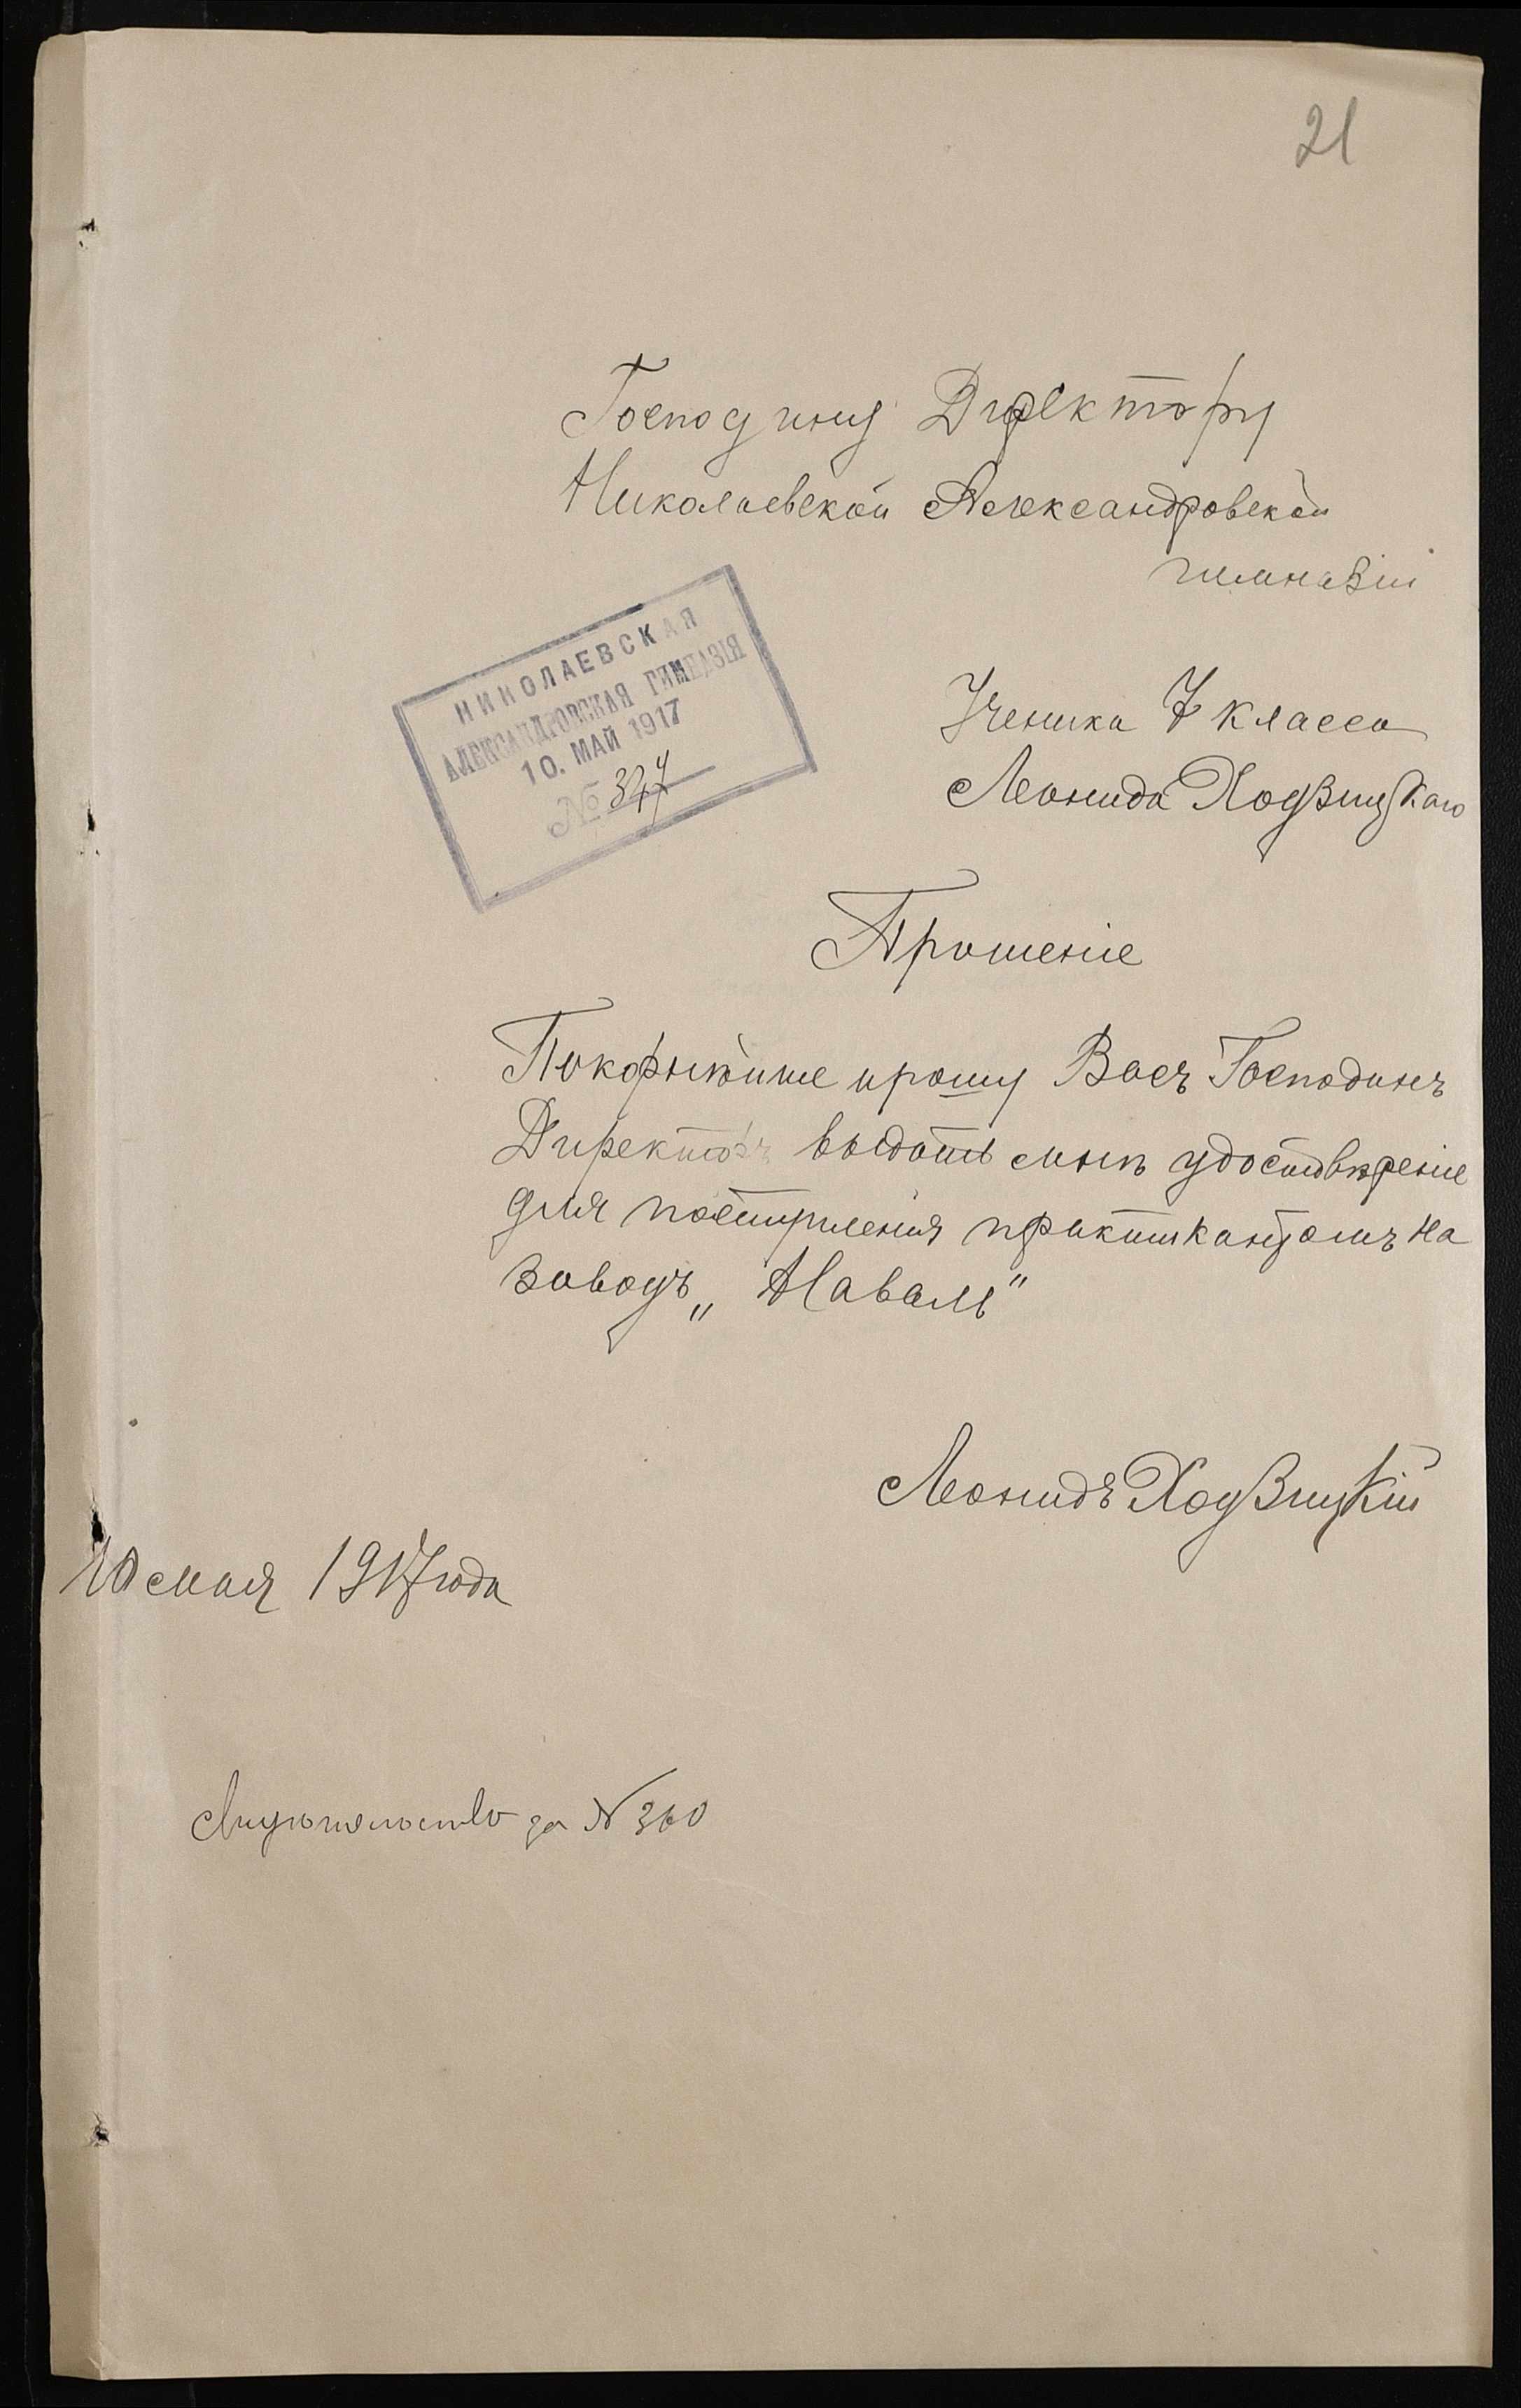 21
Господину Директору
Николаевской Александровской
гимназіи
НИКОЛАЕВСКАЯ
АЛЕКСАНДРОВСКАЯ ГИМНАЗІЯ
10. МАЙ 1917
№ 347
Ученика 7 класса
Леонида Ходзицкаго
Прошеніе
Покорнѣйше прошу Васъ Господинъ
Директоръ выдать мнѣ удостовѣреніе
для поступленія практикантомъ на
заводъ „Наваль"
Леонидъ Ходзицкій
10 мая 1917 года
за № 360